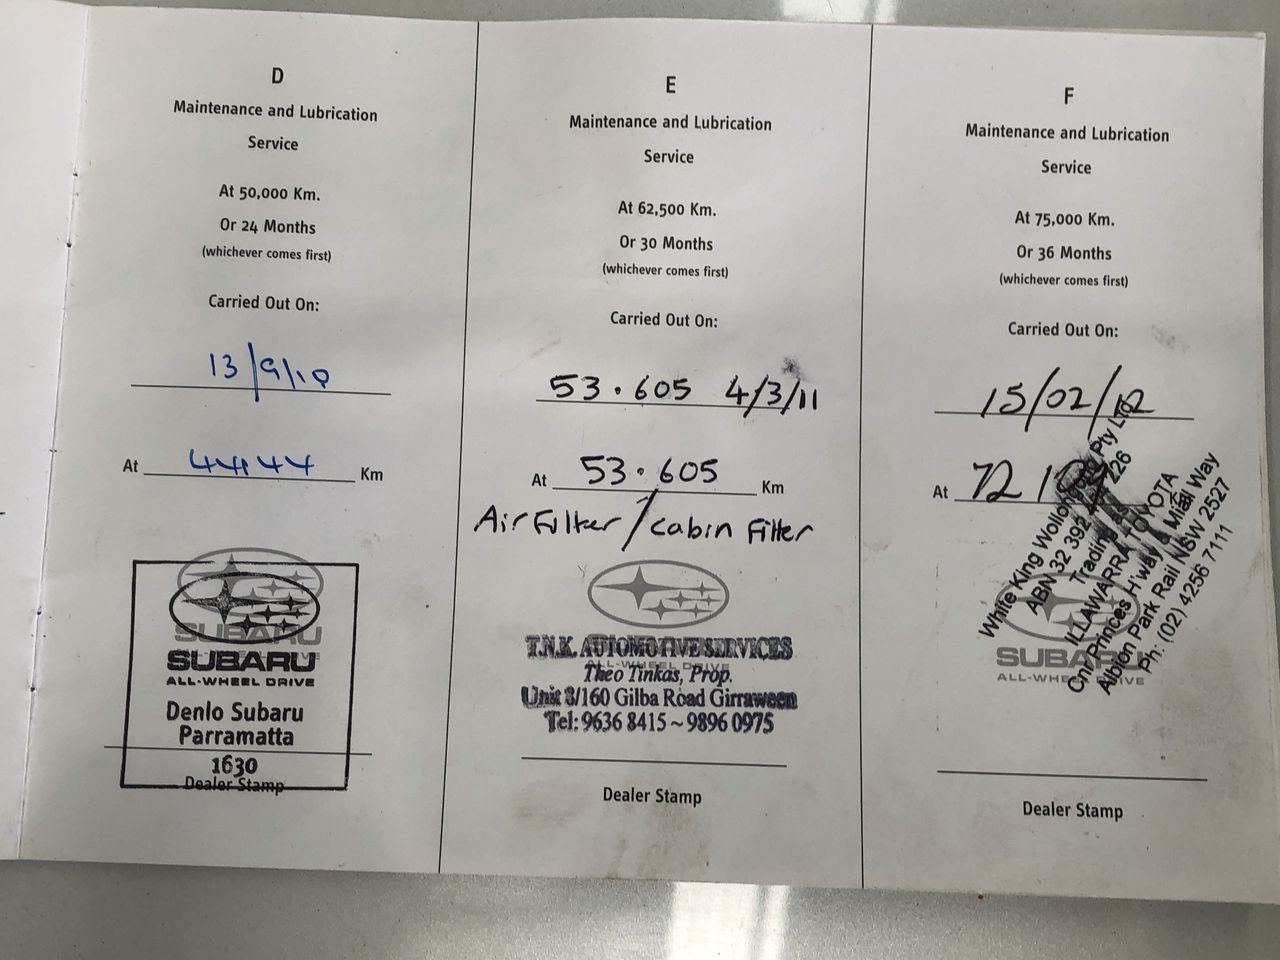 D
Maintenance and Lubrication
Service
At 50,000 Km.
Or 24 Months
(whichever comes first)
Carried Out On:
13/9/10
At 44144 Km
SUBARU
SUBARU
ALL-WHEEL DRIVE
Denlo Subaru
Parramatta
1630
Dealer Stamp
E
Maintenance and Lubrication
Service
At 62,500 Km.
Or 30 Months
(whichever comes first)
Carried Out On:
53.605 4/3/11
At 53.605 Km
Air Filter / Cabin Filter
T.N.K. AUTOMOTIVE SERVICES
ALL-WHEEL DRIVE
Theo Tinkas, Prop.
Unit 8/160 Gilba Road Girraween
Tel: 9636 8415 ~ 9896 0975
Dealer Stamp
F
Maintenance and Lubrication
Service
At 75,000 Km.
Or 36 Months
(whichever comes first)
Carried Out On:
15/02/12
At 72
White King Wollongong Pty Ltd
ABN 32 392 226
Trading as
ILLAWARRA TOYOTA
Cnr Princes H'way & Miall Way
Albion Park Rail NSW 2527
Ph: (02) 4256 7111
SUBARU
ALL-WHEEL DRIVE
Dealer Stamp